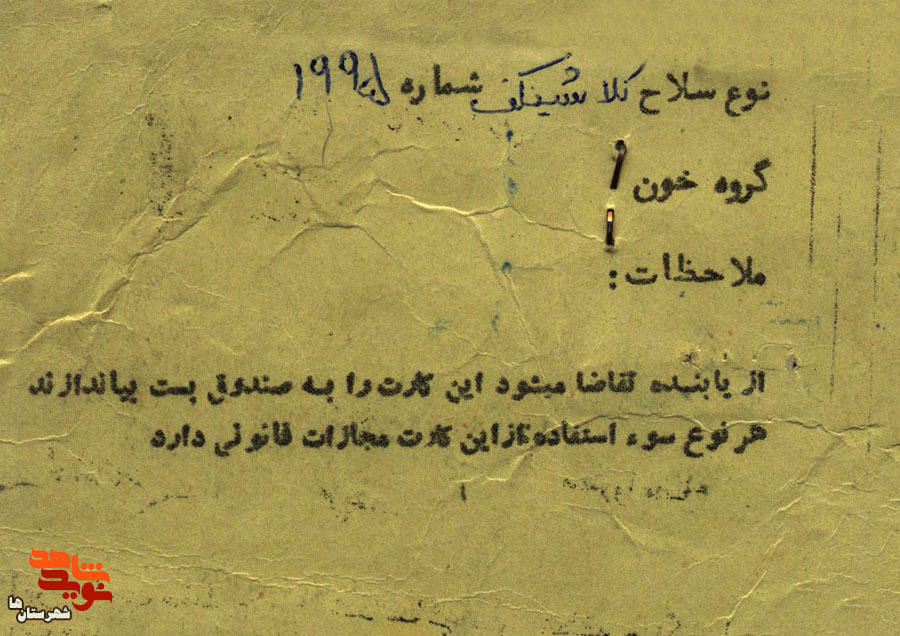 نوع سلاح کلاشینکف شماره
گروه خون
ملاحظات :
از یابنده تقاضا میشود این کارت را به صندوق پست بیاندازند
هر نوع سوء استفاده از این کارت مجازات قانونی دارد
نوید شاهد
شهرستان‌ها